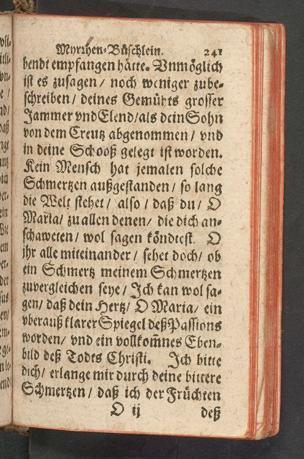 Myrrhen-Büschlein. 241
bendt empfangen hätte. Vnmöglich
ist es zusagen / noch weniger zube-
schreiben / deines Gemühts grosser
Jammer vnd Elend / als dein Sohn
von dem Creutz abgenommen / vnd
in deine Schooß gelegt ist worden.
Kein Mensch hat jemalen solche
Schmertzen außgestanden / so lang
die Welt stehet / also / daß du / O
Maria / zu allen denen / die dich an-
schaweten / wol sagen köndtest. O
ihr alle miteinander / sehet doch / ob
ein Schmertz meinem Schmertzen
zuvergleichen seye / Ich kan wol sa-
gen / daß dein Hertz / O Maria / ein
vberauß klarer Spiegel deß Passions
worden / vnd ein vollkom̃nes Eben-
bild deß Todts Christi. Ich bitte
dich / erlange mir durch deine bittere
Schmertzen / daß ich der Früchten
O ij deß